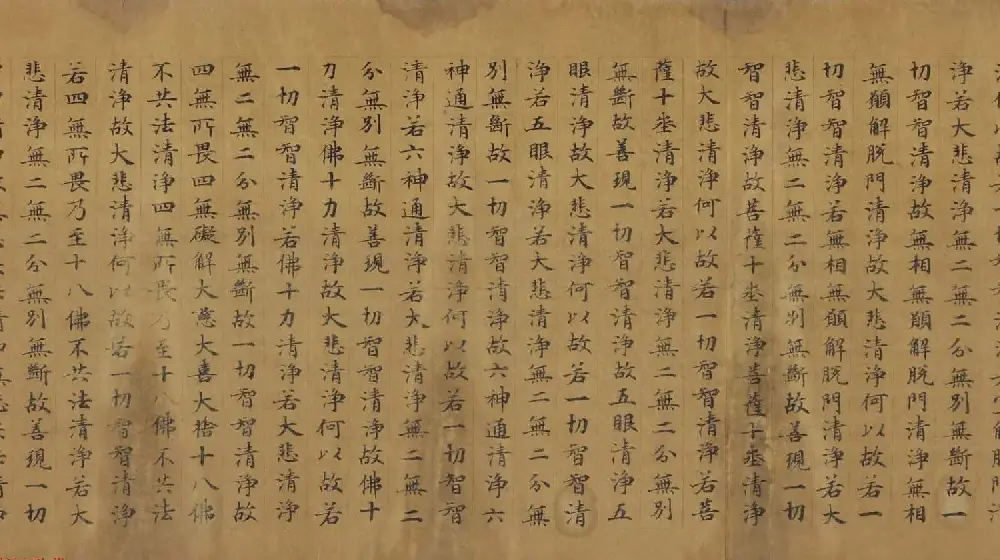 淨若大悲清淨無二無二分無別無斷故一
切智智清淨故無相無願解脫門清淨無相
無願解脫門清淨故大悲清淨何以故若一
切智智清淨若無相無願解脫門清淨若大
悲清淨無二無二分無別無斷故善現一切
智智清淨故菩薩十埊清淨菩薩十埊清淨
故大悲清淨何以故若一切智智清淨若菩
薩十埊清淨若大悲清淨無二無二分無別
無斷故善現一切智智清淨故五眼清淨五
眼清淨故大悲清淨何以故若一切智智清
淨若五眼清淨若大悲清淨無二無二分無
別無斷故一切智智清淨故六神通清淨六
神通清淨故大悲清淨何以故若一切智智
清淨若六神通清淨若大悲清淨無二無二
分無別無斷故善現一切智智清淨故佛十
力清淨佛十力清淨故大悲清淨何以故若
一切智智清淨若佛十力清淨若大悲清淨
無二無二分無別無斷故一切智智清淨故
四無所畏四無礙解大慈大喜大捨十八佛
不共法清淨四無所畏乃至十八佛不共法
清淨故大悲清淨何以故若一切智智清淨
若四無所畏乃至十八佛不共法清淨若大
悲清淨無二無二分無別無斷故善現一切